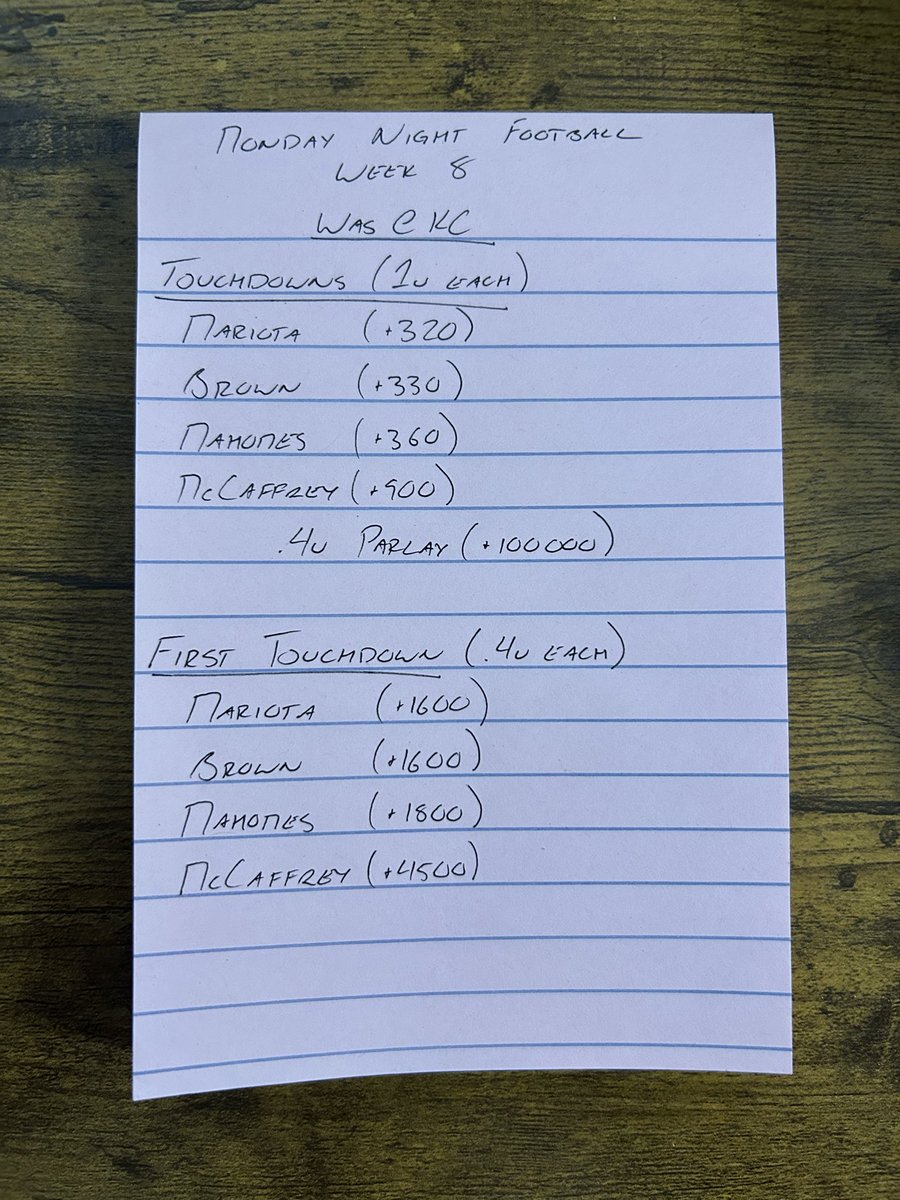 MONDAY NIGHT FOOTBALL
WEEK 8
WAS @ KC
TOUCHDOWNS (1U EACH)
MARIOTA (+320)
BROWN (+330)
MAHOMES (+360)
MCCAFFREY (+900)
.4U PARLAY (+100000)
FIRST TOUCHDOWN (.4U EACH)
MARIOTA (+1600)
BROWN (+1600)
MAHOMES (+1800)
MCCAFFREY (+4500)